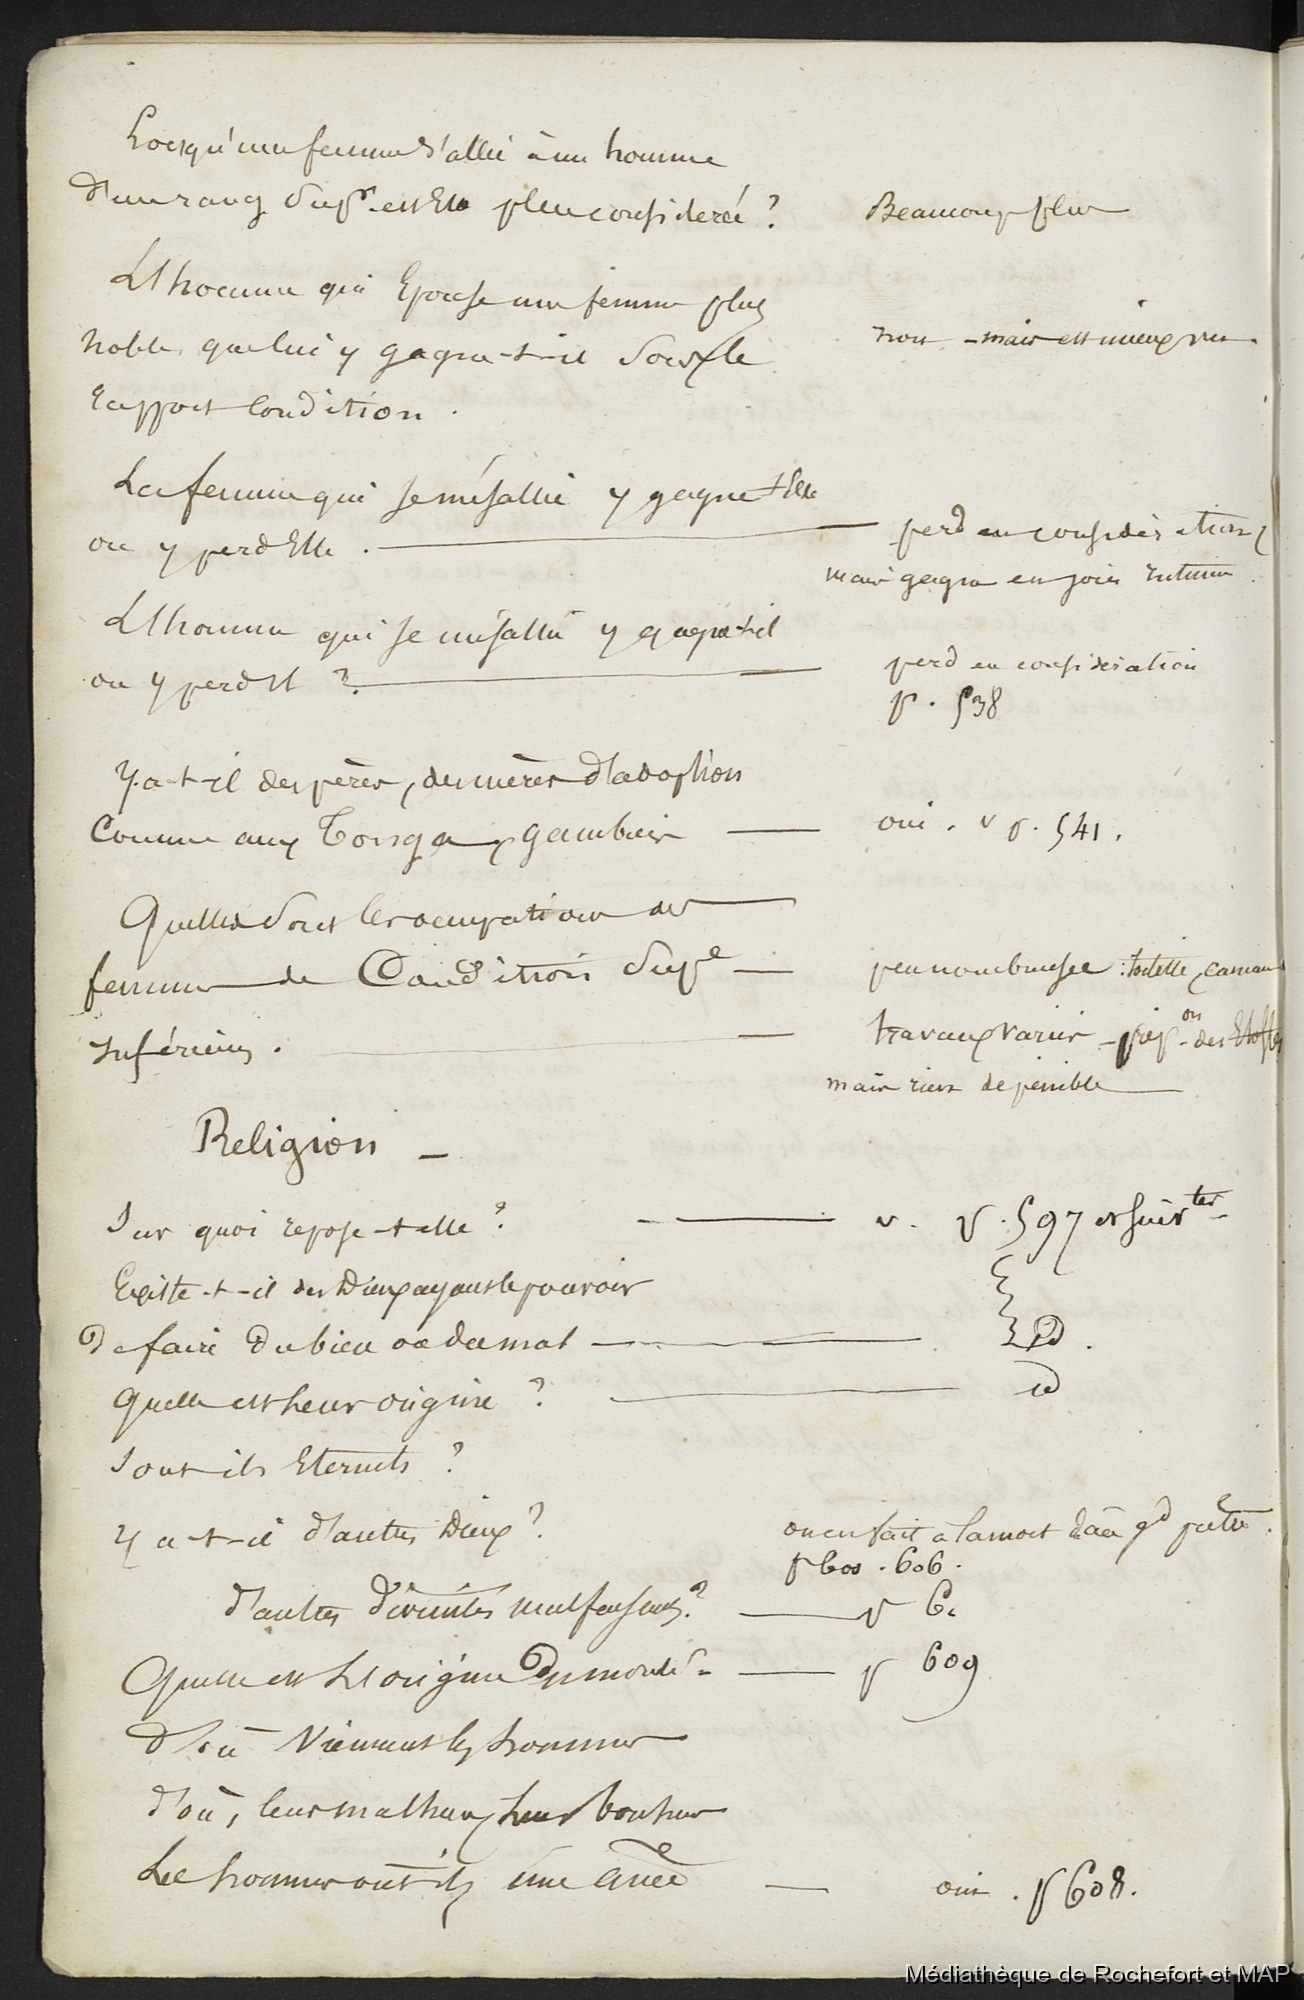 Lorsqu'une femme s'allie à un homme
d'un rang supr. est Elle plus considerée ? Beaucoup plus
L'homme qui Epouse une femme plus
noble que lui y gagne-t-il sous le non - mais est mieux vu
rapport Condition .
La femme qui se mésallie y gagne t Elle
ou y perd Elle . perd en considération
mais gagne en joie intime .
L'homme qui se mésallie y gagne t-il
ou y perd Il ? perd en consideration
p. 538
Y a-t-il des pères, des mères d'adoption
Comme aux Tonga, gambier oui . v p. 541 .
Quelles sont les occupations des
femmes de Condition supe peu nombreuses : toilette,
Inférieure . travaux variés - prépon des Etoffes
mais rien de penible
Religion -
Sur quoi repose-t-elle ? v. p. 597 et suivtes
Existe-t-il des Dieux ayant le pouvoir
De faire du bien ou du mal id .
Quelle est leur origine ? id
Sont ils Eternels ?
Y a-t-il d'autres Dieux ? on en fait a la mort gd prêtre .
p 600 . 606 .
d'autres divinités malfaisantes ? p
Quelle est L'origine Du monde p 609
d'où Viennent les hommes
d'où, leur malheur, leur bonheur
Les hommes ont ils une âme oui . p 608 .
Médiathèque de Rochefort et MAP